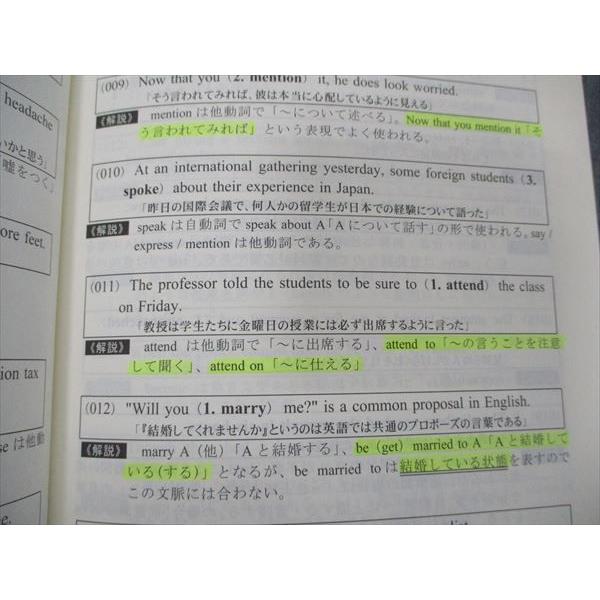 headache
いかと思う」
嘘をつく」
ore feet.
ion tax
se は他動
e.
(009) Now that you (2. mention) it, he does look worried.
「そう言われてみれば、彼は本当に心配しているように見える」
《解説》 mention は他動詞で「～について述べる」。Now that you mention it「そ
う言われてみれば」という表現でよく使われる。
(010) At an international gathering yesterday, some foreign students (3.
spoke) about their experience in Japan.
「昨日の国際会議で、何人かの留学生が日本での経験について語った」
《解説》 speak は自動詞で speak about A「A について話す」の形で使われる。say /
express / mention は他動詞である。
(011) The professor told the students to be sure to (1. attend) the class
on Friday.
「教授は学生たちに金曜日の授業には必ず出席するように言った」
《解説》 attend は他動詞で「～に出席する」、attend to「～の言うことを注意
して聞く」、attend on「～に仕える」
(012) "Will you (1. marry) me?" is a common proposal in English.
「『結婚してくれませんか』というのは英語では共通のプロポーズの言葉である」
《解説》 marry A（他）「A と結婚する」、be (get) married to A「A と結婚して
いる(する)」となるが、be married to は結婚している状態を表すので
この文脈には合わない。